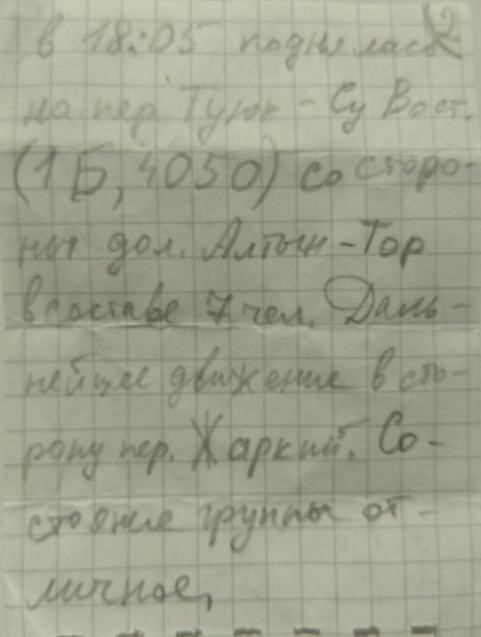 2
в 18:05 поднялась
на пер. Туюк-Су Вост.
(1Б, 4050) со сторо-
ны дол. Алтын-Тор
в составе 7 чел. Даль-
нейшее движение в сто-
рону пер. Жаркий. Со-
стояние группы от-
личное,